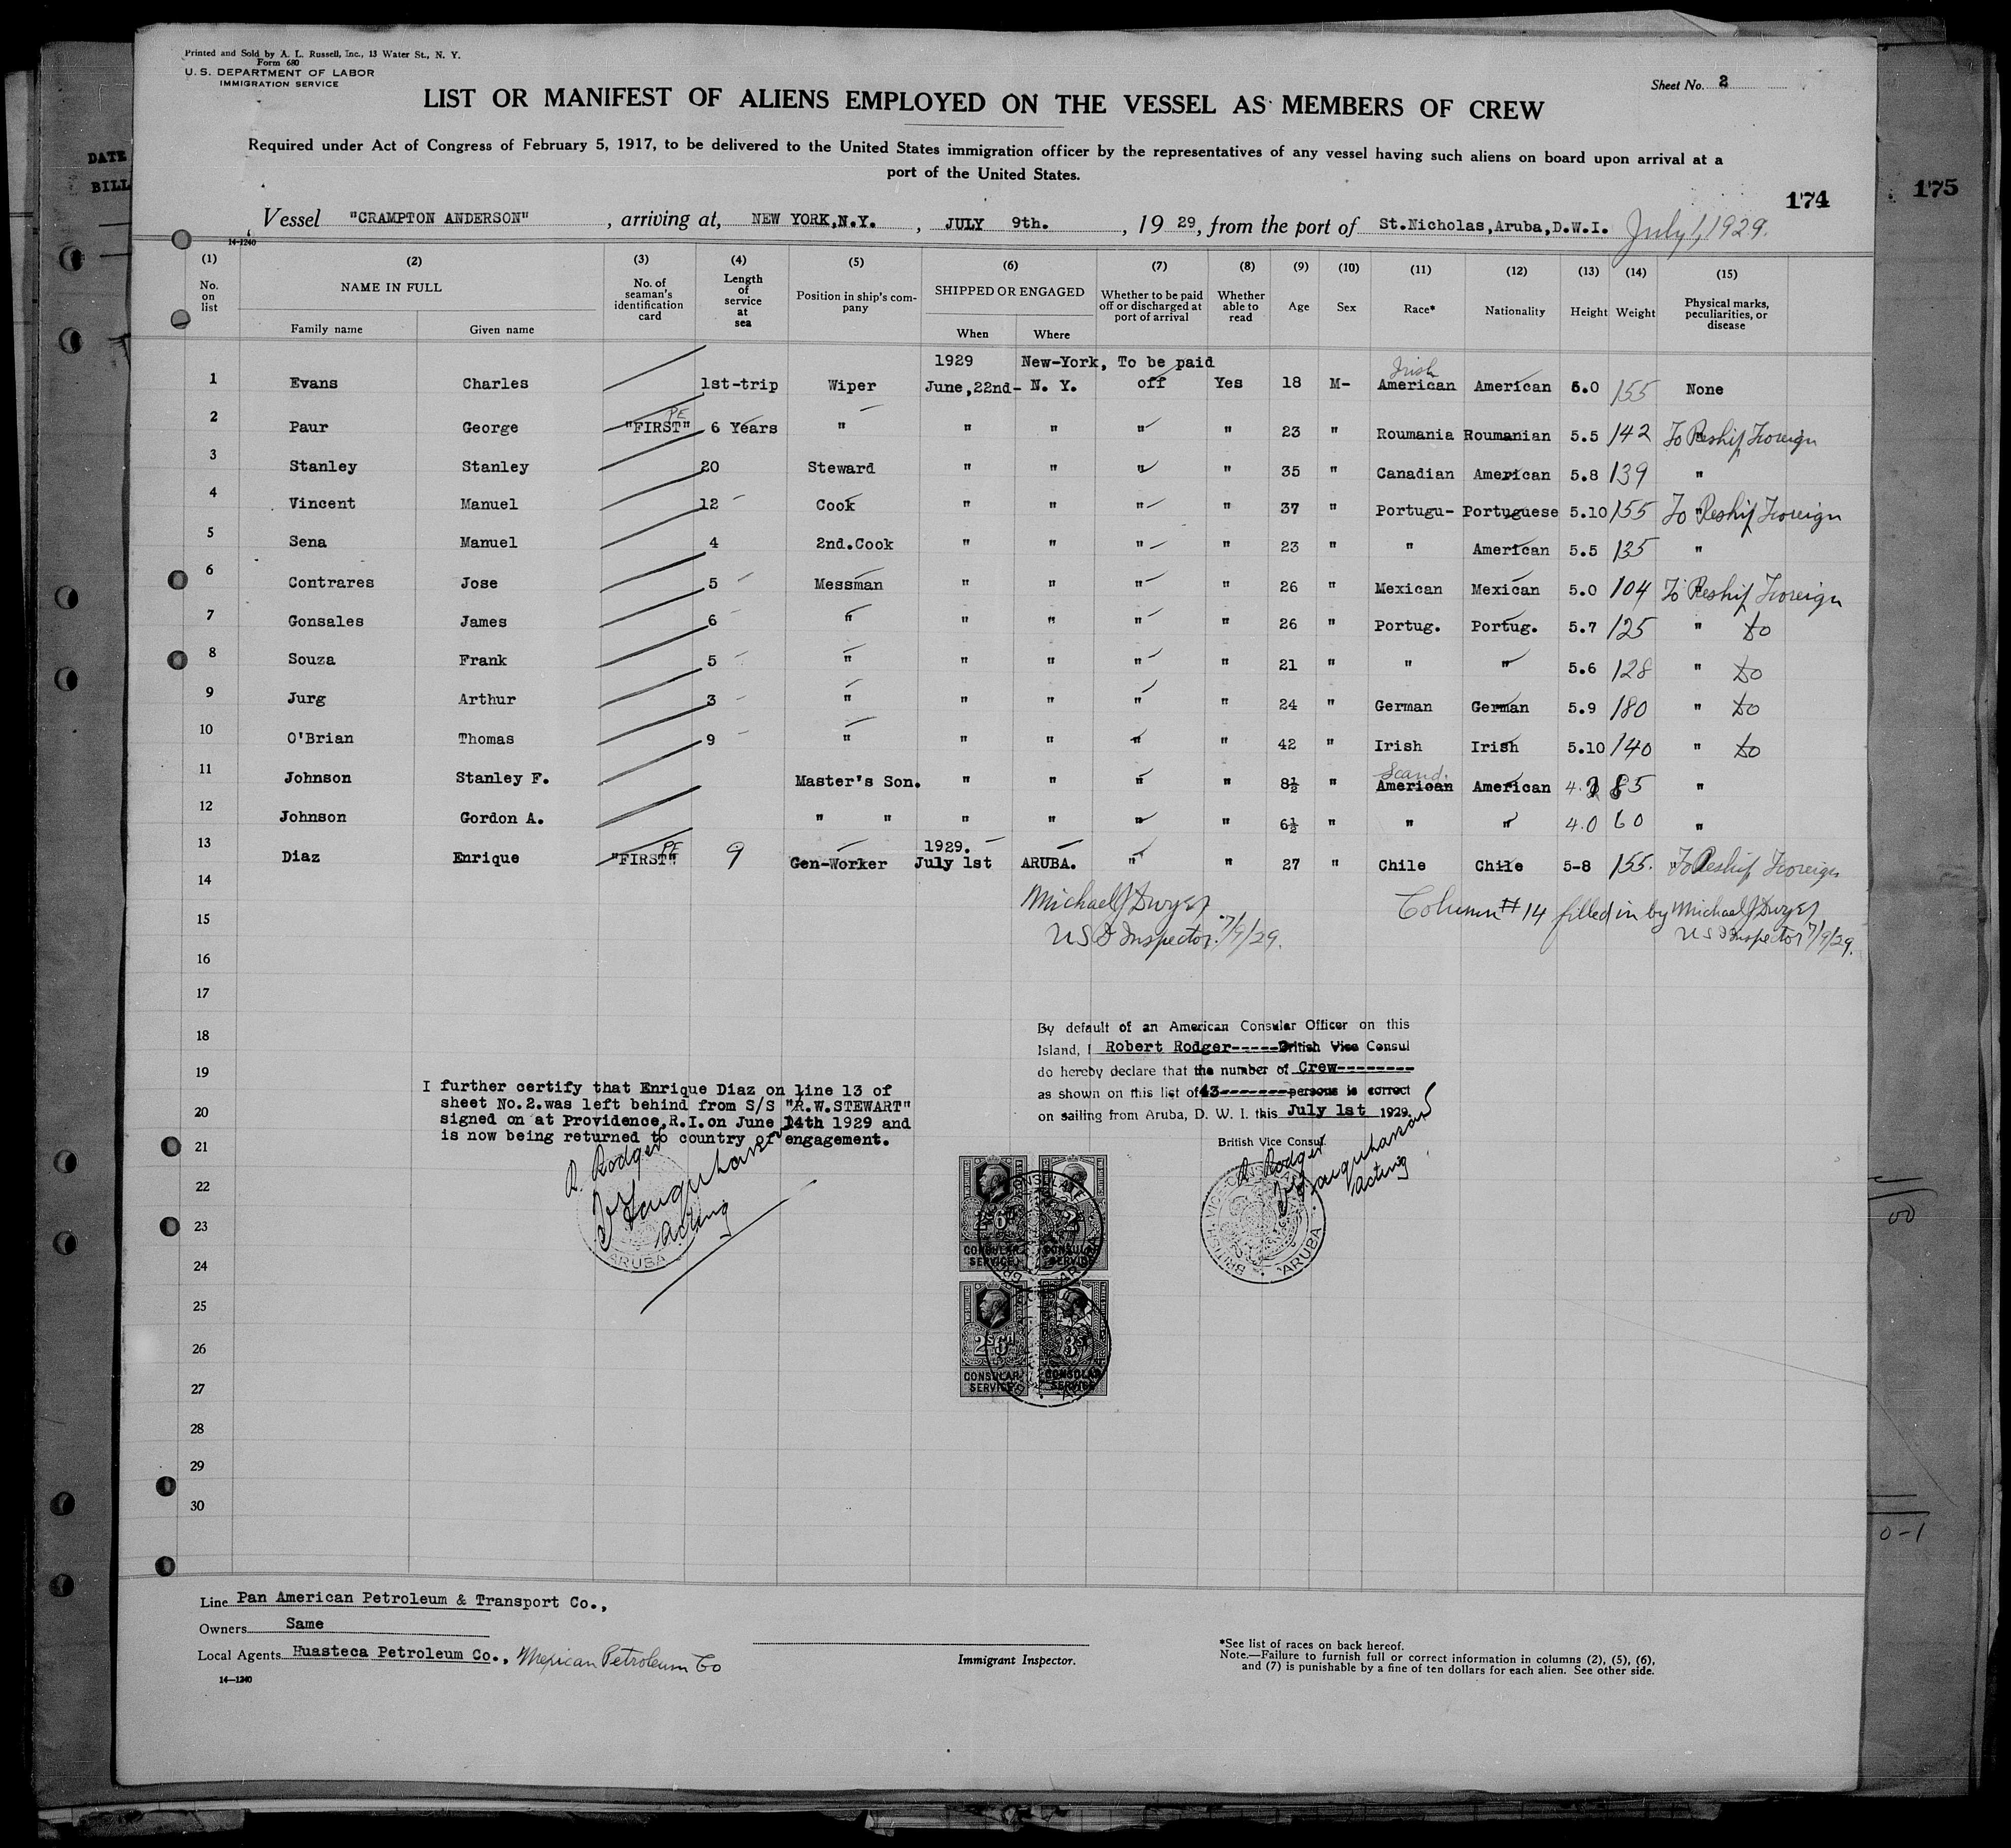 Printed and Sold by A. L. Russell, Inc., 13 Water St., N. Y.
Form 680
U. S. DEPARTMENT OF LABOR
IMMIGRATION SERVICE
Sheet No. 2
LIST OR MANIFEST OF ALIENS EMPLOYED ON THE VESSEL AS MEMBERS OF CREW
Required under Act of Congress of February 5, 1917, to be delivered to the United States immigration officer by the representatives of any vessel having such aliens on board upon arrival at a
port of the United States.
DATE
BILL
174
175
Vessel "CRAMPTON ANDERSON", arriving at, NEW YORK,N.Y., JULY 9th., 19 29, from the port of St.Nicholas,Aruba,D.W.I. July 1, 1929.
14-1240
(1) (2) (3) (4) (5) (6) (7) (8) (9) (10) (11) (12) (13) (14) (15)
No. on list NAME IN FULL No. of seaman's identification card Length of service at sea Position in ship's company SHIPPED OR ENGAGED Whether to be paid off or discharged at port of arrival Whether able to read Age Sex Race* Nationality Height Weight Physical marks, peculiarities, or disease
Family name Given name When Where
1929 New-York, To be paid Irish
1 Evans Charles 1st-trip Wiper June,22nd- N. Y. off Yes 18 M- American American 5.0 155 None
2 Paur George "FIRST" PE 6 Years " " " " " 23 " Roumania Roumanian 5.5 142 " To Reship Foreign
3 Stanley Stanley 20 Steward " " " " 35 " Canadian American 5.8 139 "
4 Vincent Manuel 12 Cook " " " " 37 " Portugu- Portuguese 5.10 155 " To Reship Foreign
5 Sena Manuel 4 2nd.Cook " " " " 23 " " American 5.5 135 "
6 Contrares Jose 5 Messman " " " " 26 " Mexican Mexican 5.0 104 " To Reship Foreign
7 Gonsales James 6 " " " " " 26 " Portug. Portug. 5.7 125 " do
8 Souza Frank 5 " " " " " 21 " " " 5.6 128 " do
9 Jurg Arthur 3 " " " " " 24 " German German 5.9 180 " do
10 O'Brian Thomas 9 " " " " " 42 " Irish Irish 5.10 140 " do
Scand.
11 Johnson Stanley F. Master's Son. " " " " 8½ " American American 4. 85 "
12 Johnson Gordon A. " " " " " " 6½ " " " 4.0 60 "
1929.
13 Diaz Enrique "FIRST" PE 9 Gen-Worker July 1st ARUBA. " " 27 " Chile Chile 5-8 155. " To Reship Foreign
14
Michael J Dwyer
Column #14 filled in by Michael J Dwyer
15
US I Inspector. 7/9/29.
US I Inspector 7/9/29.
16
17
18
By default of an American Consular Officer on this
Island, I Robert Rodger-----British Vice Consul
do hereby declare that the number of Crew--------
as shown on this list of 43-------persons is correct
on sailing from Aruba, D. W. I. this July 1st 1929.
19
I further certify that Enrique Diaz on line 13 of
sheet No.2.was left behind from S/S "R.W.STEWART"
signed on at Providence,R.I.on June 14th 1929 and
is now being returned to country of engagement.
20
21
British Vice Consul
R. Rodger
Acting
R. Rodger
Acting
ARUBA
BRITISH VICE-CONSULATE ARUBA
22
23
24
CONSULAR SERVICE
CONSULAR SERVICE
25
26
2s6d 3s
27
CONSULAR SERVICE
CONSULAR SERVICE
28
29
30
0-1
Line Pan American Petroleum & Transport Co.,
Owners Same
Local Agents Huasteca Petroleum Co., Mexican Petroleum Co
14—1240
Immigrant Inspector.
*See list of races on back hereof.
Note.—Failure to furnish full or correct information in columns (2), (5), (6),
and (7) is punishable by a fine of ten dollars for each alien. See other side.